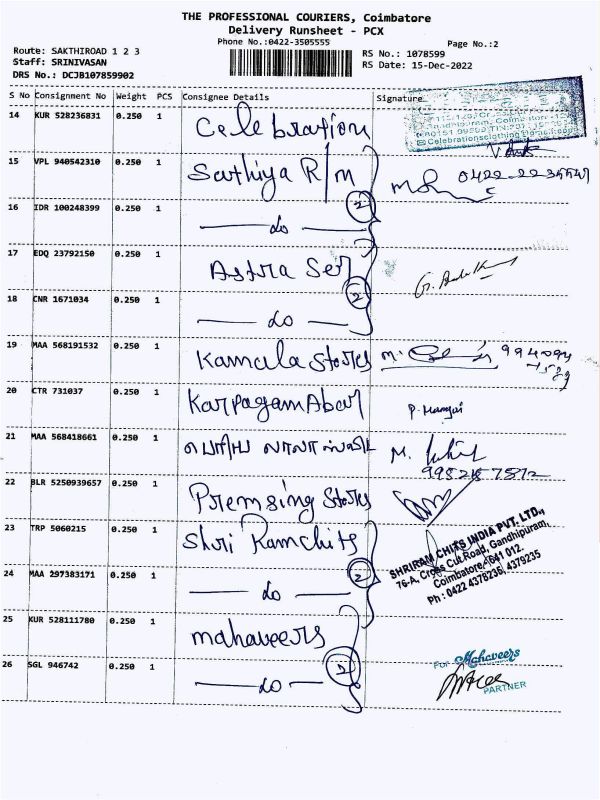 THE PROFESSIONAL COURIERS, Coimbatore
Delivery Runsheet - PCX
Phone No.:0422-3505555
Page No.:2
Route: SAKTHIROAD 1 2 3
RS No.: 1078599
Staff: SRINIVASAN
RS Date: 15-Dec-2022
DRS No.: DCJB107859902
S No Consignment No Weight PCS Consignee Details Signature
14 KUR 528236831 0.250 1 Celebration
15 VPL 940542310 0.250 1 Sathiya R/m
16 IDR 100248399 0.250 1 do
2
17 EDQ 23792150 0.250 1 Astra Ser
18 CNR 1671034 0.250 1 do
2
19 MAA 568191532 0.250 1 Kamala Stores
20 CTR 731037 0.250 1 Karpagam Abar
21 MAA 568418661 0.250 1 M.
22 BLR 5250939657 0.250 1 Premsing Stores
23 TRP 5060215 0.250 1 Shri Ramchits
SHRIRAM CHITS INDIA PVT. LTD.,
76-A, Cross Cut Road, Gandhipuram,
Coimbatore-641 012.
Ph : 0422 4378236, 4379235
24 MAA 297383171 0.250 1 do
2
25 KUR 528111780 0.250 1 mahaveers
26 SGL 946742 0.250 1 do
2
For Mahaveers
PARTNER